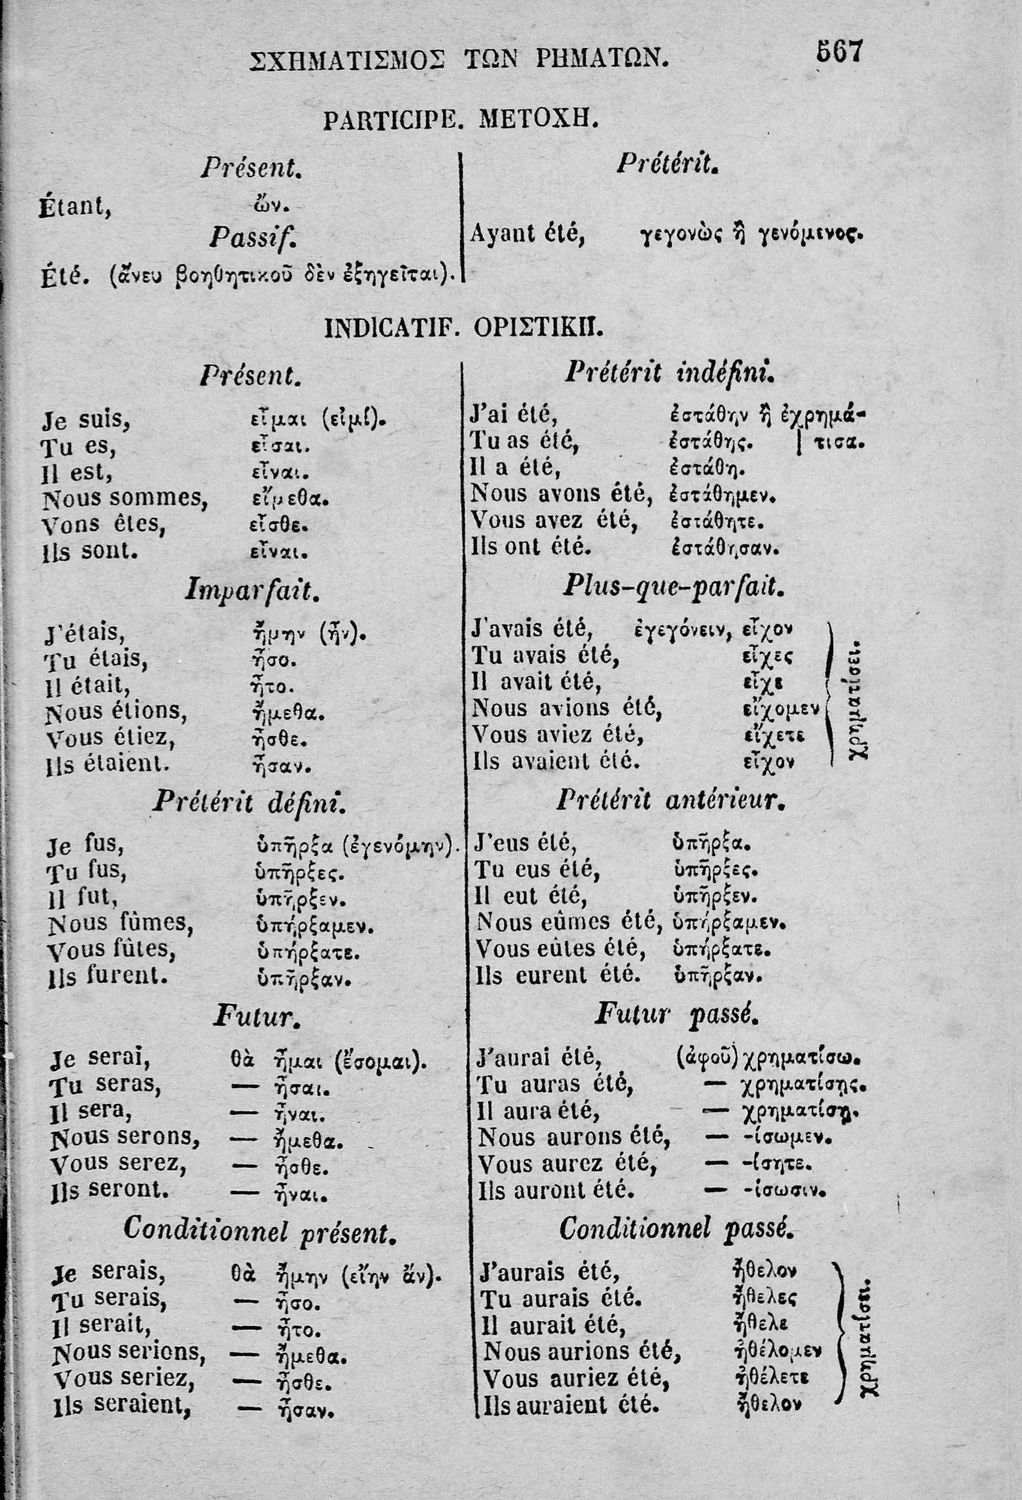 ΣΧΗΜΑΤΙΣΜΟΣ ΤΩΝ ΡΗΜΑΤΩΝ. 567
PARTICIPE. ΜΕΤΟΧΗ.
Présent.
Étant, ὤν.
Passif.
Été. (ἄνευ βοηθητικοῦ δὲν ἐξηγεῖται).
Prétérit.
Ayant été, γεγονὼς ἢ γενόμενος.
INDICATIF. ΟΡΙΣΤΙΚΗ.
Présent.
Je suis, εἶμαι (εἰμί).
Tu es, εἶσαι.
Il est, εἶναι.
Nous sommes, εἴμεθα.
Vous êtes, εἶσθε.
Ils sont. εἶναι.
Imparfait.
J'étais, ἤμην (ἦν).
Tu étais, ἦσο.
Il était, ἦτο.
Nous étions, ἤμεθα.
Vous étiez, ἦσθε.
Ils étaient. ἦσαν.
Prétérit défini.
Je fus, ὑπῆρξα (ἐγενόμην).
Tu fus, ὑπῆρξες.
Il fut, ὑπῆρξεν.
Nous fûmes, ὑπήρξαμεν.
Vous fûtes, ὑπήρξατε.
Ils furent. ὑπῆρξαν.
Futur.
Je serai, θὰ ἦμαι (ἔσομαι).
Tu seras, — ἦσαι.
Il sera, — ἦναι.
Nous serons, — ἤμεθα.
Vous serez, — ἦσθε.
Ils seront. — ἦναι.
Conditionnel présent.
Je serais, θὰ ἤμην (εἴην ἄν).
Tu serais, — ἦσο.
Il serait, — ἦτο.
Nous serions, — ἤμεθα.
Vous seriez, — ἦσθε.
Ils seraient, — ἦσαν.
Prétérit indéfini.
J'ai été, ἐστάθην ἢ ἐχρημά-
Tu as été, ἐστάθης. | τισα.
Il a été, ἐστάθη.
Nous avons été, ἐστάθημεν.
Vous avez été, ἐστάθητε.
Ils ont été. ἐστάθησαν.
Plus-que-parfait.
J'avais été, ἐγεγόνειν, εἶχον
Tu avais été, εἶχες
Il avait été, εἶχε
Nous avions été, εἴχομεν
Vous aviez été, εἴχετε
Ils avaient été. εἶχον
χρηματίσει.
Prétérit antérieur.
J'eus été, ὑπῆρξα.
Tu eus été, ὑπῆρξες.
Il eut été, ὑπῆρξεν.
Nous eûmes été, ὑπήρξαμεν.
Vous eûtes été, ὑπήρξατε.
Ils eurent été. ὑπῆρξαν.
Futur passé.
J'aurai été, (ἀφοῦ) χρηματίσω.
Tu auras été, — χρηματίσῃς.
Il aura été, — χρηματίσῃ.
Nous aurons été, — -ίσωμεν.
Vous aurez été, — -ίσητε.
Ils auront été. — -ίσωσιν.
Conditionnel passé.
J'aurais été, ἤθελον
Tu aurais été. ἤθελες
Il aurait été, ἤθελε
Nous aurions été, ἠθέλομεν
Vous auriez été, ἠθέλετε
Ils auraient été. ἤθελον
χρηματίσει.